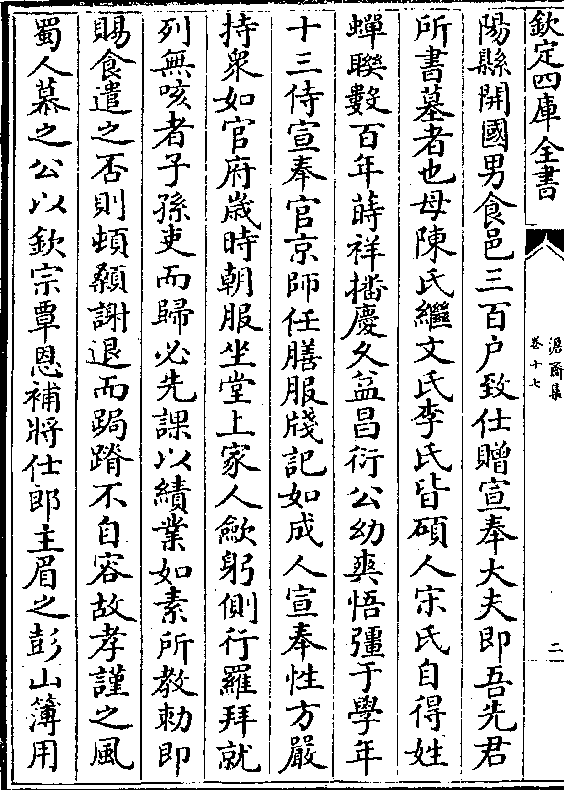 欽定四庫全書
澹齋集
卷十七
二
陽縣開國男食邑三百户致仕贈宣奉大夫即吾先君
所書墓者也母陳氏繼文氏李氏皆碩人宋氏自得姓
蟬聯數百年蒔祥播慶久益昌衍公幼爽悟彊于學年
十三侍宣奉官京師任膳服牋記如成人宣奉性方嚴
持衆如官府歳時朝服坐堂上家人歛躬側行羅拜就
列無咳者子孫吏而歸必先課以績業如素所教勅即
賜食遣之否則頓顙謝退而跼蹐不自容故孝謹之風
蜀人慕之公以欽宗覃恩補將仕郎主眉之彭山簿用